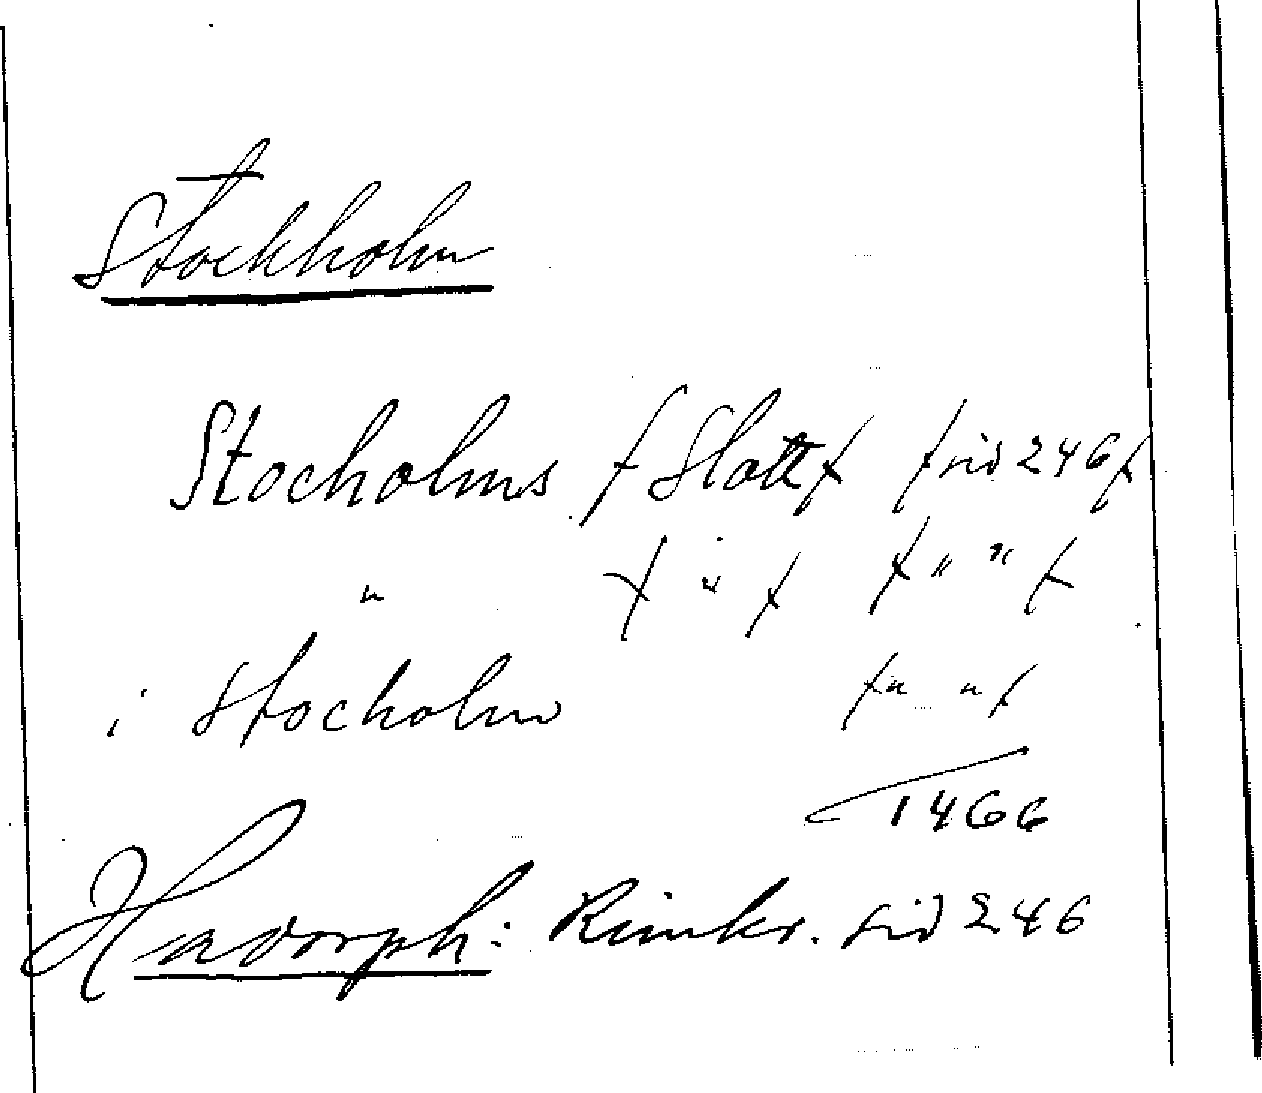 Stockholm
Stocholms / Slott / / sid 246 /
" / " / / " " /
i Stocholm / " " /
1466
Hadorph: Rimkr. sid 246